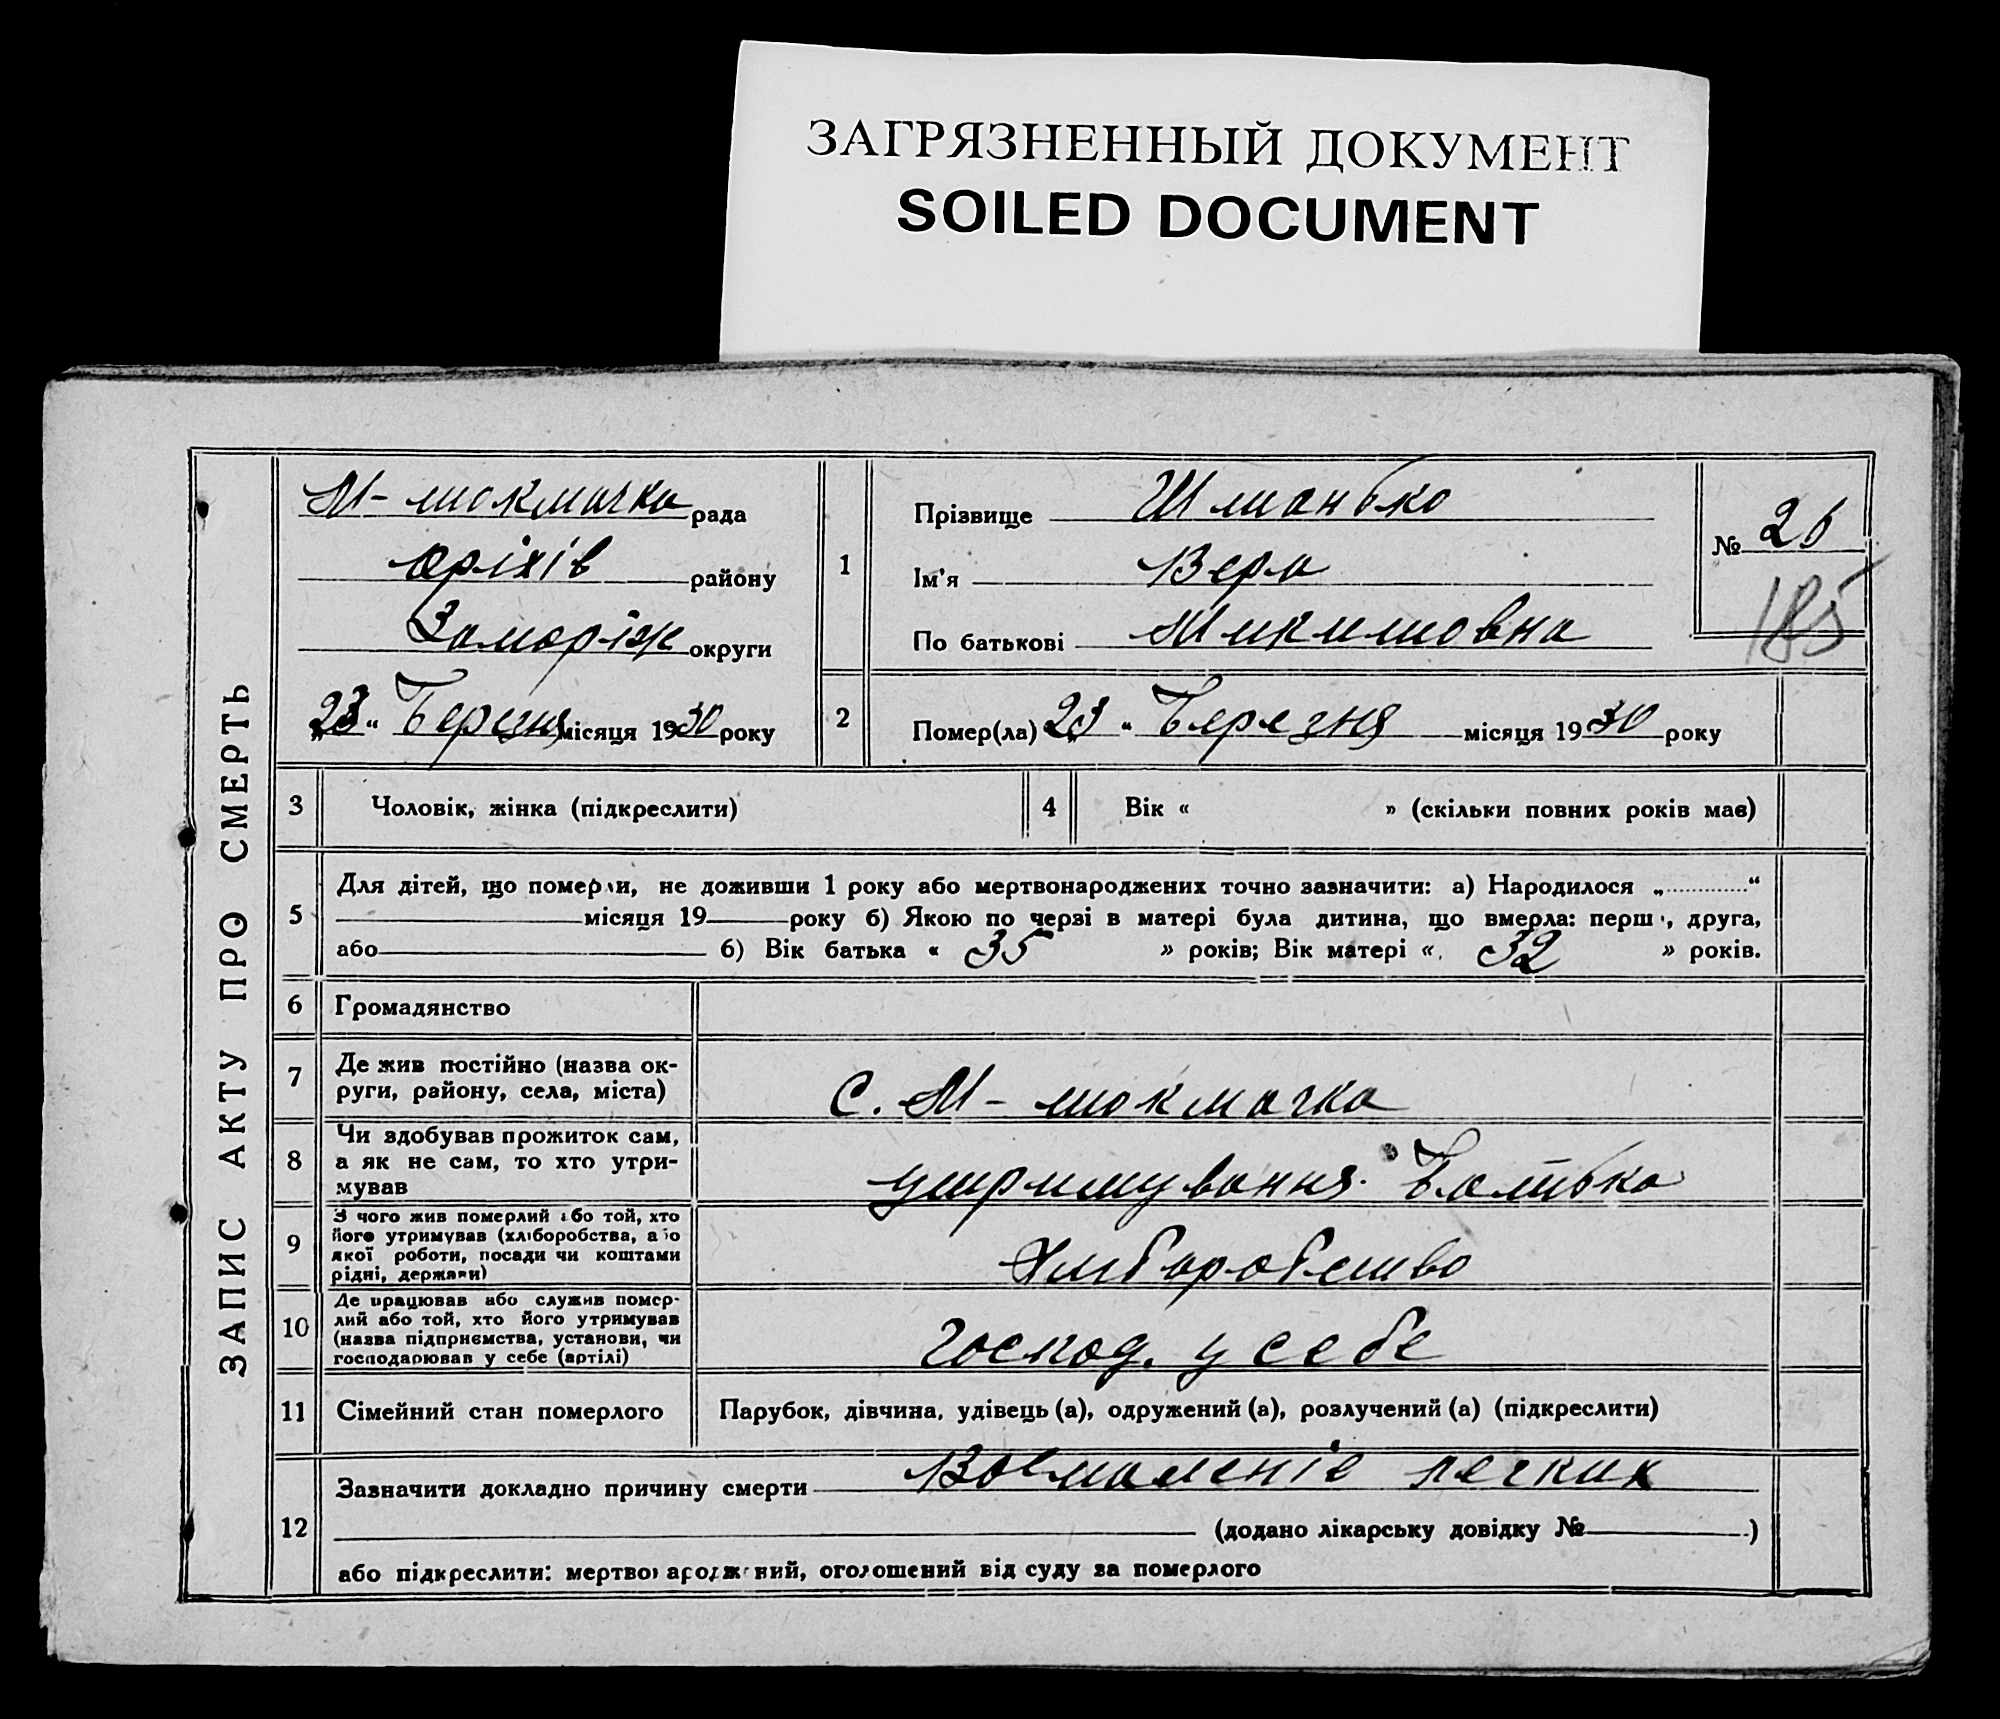 ЗАГРЯЗНЕННЫЙ ДОКУМЕНТ
SOILED DOCUMENT
ЗАПИС АКТУ ПРО СМЕРТЬ
М-токмачка рада
Оріхів району
Запоріж округи
„23“ Березня місяця 1930 року
1
Прізвище Шманько
Ім'я Вера
По батькові Микитовна
№ 26
185
2 Помер(ла) „23“ Березня місяця 1930 року
3 Чоловік, жінка (підкреслити)
4 Вік « » (скільки повних років має)
5 Для дітей, що померли, не доживши 1 року або мертвонароджених точно зазначити: а) Народилося „ “
місяця 19 року б) Якою по черві в матері була дитина, що вмерла: перша, друга,
або б) Вік батька « 35 » років; Вік матері « 32 » років.
6 Громадянство
7 Де жив постійно (назва ок-
руги, району, села, міста)
С. М-токмачка
8 Чи здобував прожиток сам,
а як не сам, то хто утри-
мував
утримування Батька
9 З чого жив померлий або той, хто
його утримував (хліборобства, або
якої роботи, посади чи коштами
рідні, держави)
Хліборобство
10 Де працював або служив помер-
лий або той, хто його утримував
(назва підприємства, установи, чи
господарював у себе (артілі)
Господ. у себе
11 Сімейний стан померлого Парубок, дівчина, удівець (а), одружений (а), розлучений (а) (підкреслити)
12 Зазначити докладно причину смерти Воспаленіе легких
(додано лікарську довідку № )
або підкреслити: мертвонароджений, оголошений від суду за померлого